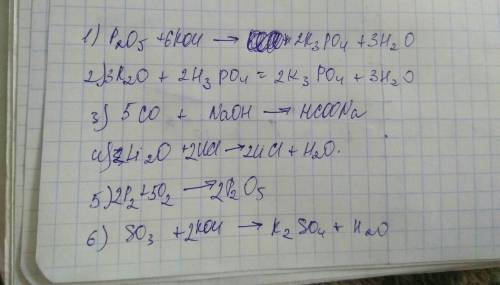 1) P₂O₅ + 6KOH → 2K₃PO₄ + 3H₂O
2) 3K₂O + 2H₃PO₄ = 2K₃PO₄ + 3H₂O
3) 5 CO + NaOH → HCOONa
4) Li₂O + 2HCl → 2LiCl + H₂O.
5) 2P₂ + 5O₂ → 2P₂O₅
6) SO₃ + 2KOH → K₂SO₄ + H₂O